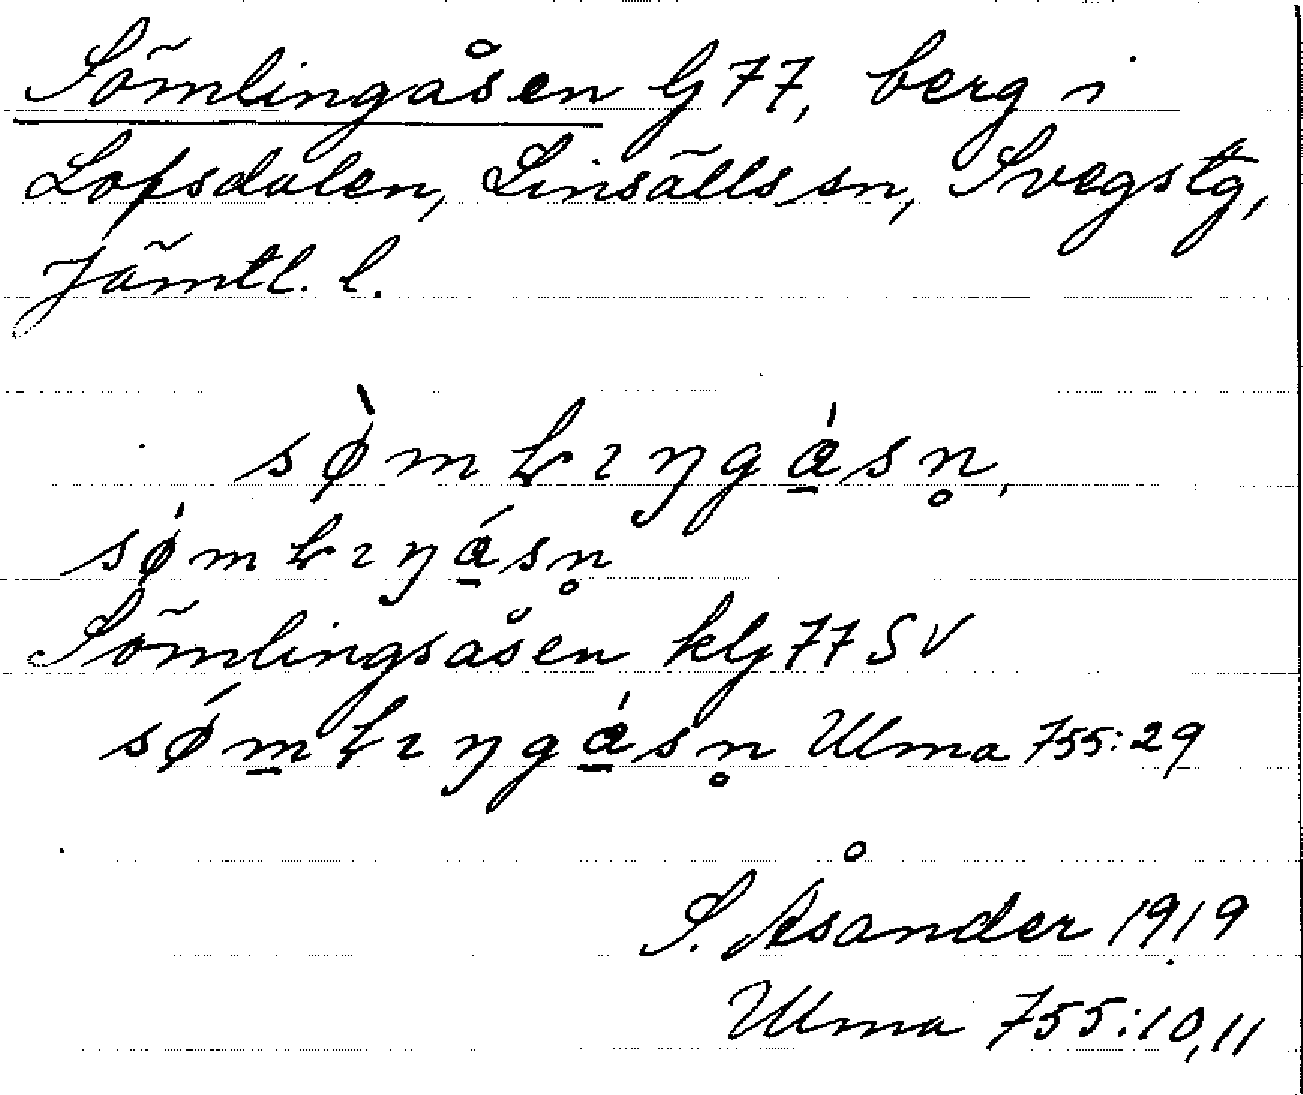 Sömlingåsen G77, berg i
Lofsdalen, Linsälls sn, Svegs tg,
Jämtl. l.
sø̀młıŋgǻ̱sn̥,
sǿmłıŋǻ̱sn̥
Sömlingsåsen klG77SV
sǿm̱łıŋgǻ̱sn̥ Ulma 755:29
S. Åsander 1919
Ulma 755:10,11